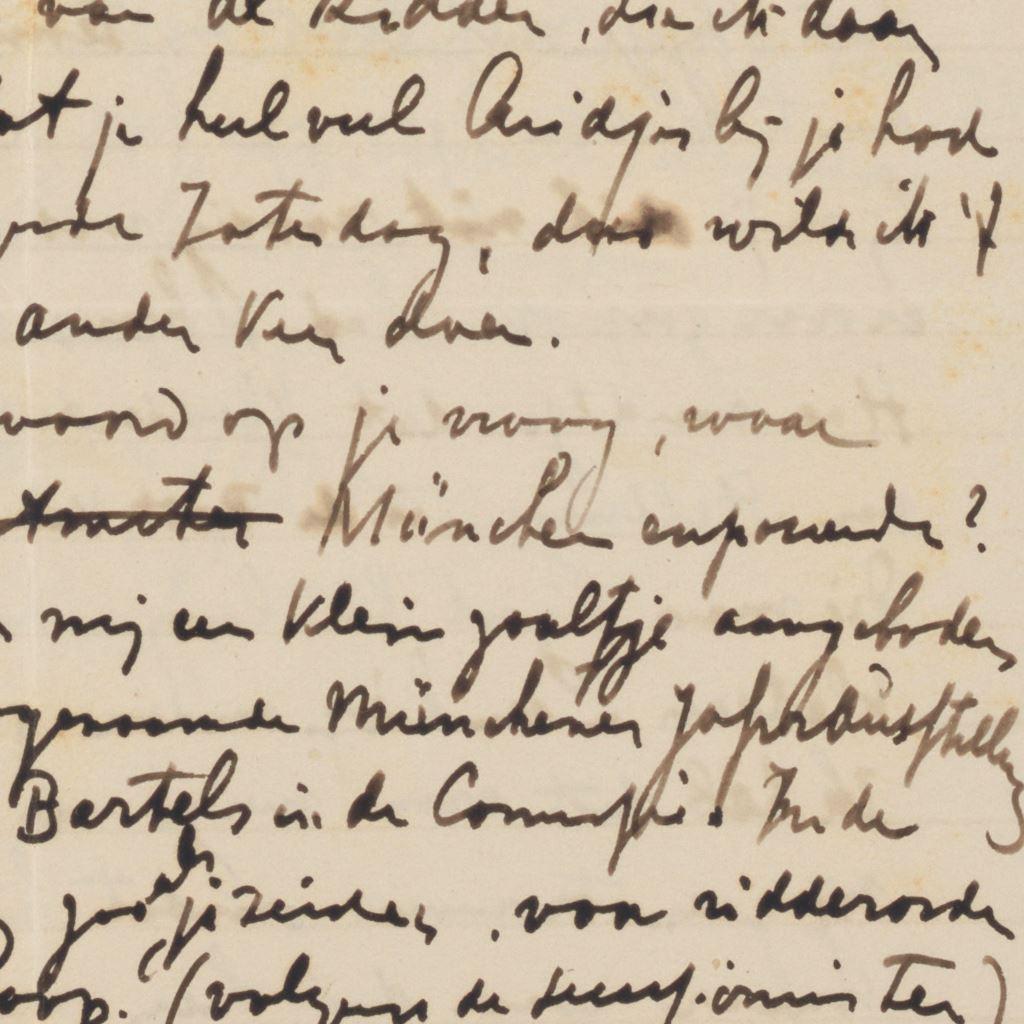 van de Ridder, die ik daar
at je heel veel luidjes bij je had
Zaterdag, dus wilde ik 't
ander keer doen.
woord op je vraag, waar
München exposeerde?
mij een klein zaaltje aangeboden
genaamde Münchener Jahresausstellung
Bartels in de Commissie. In de
zooals jezeiden, voor ridderorde
(volgens de secessionisten)